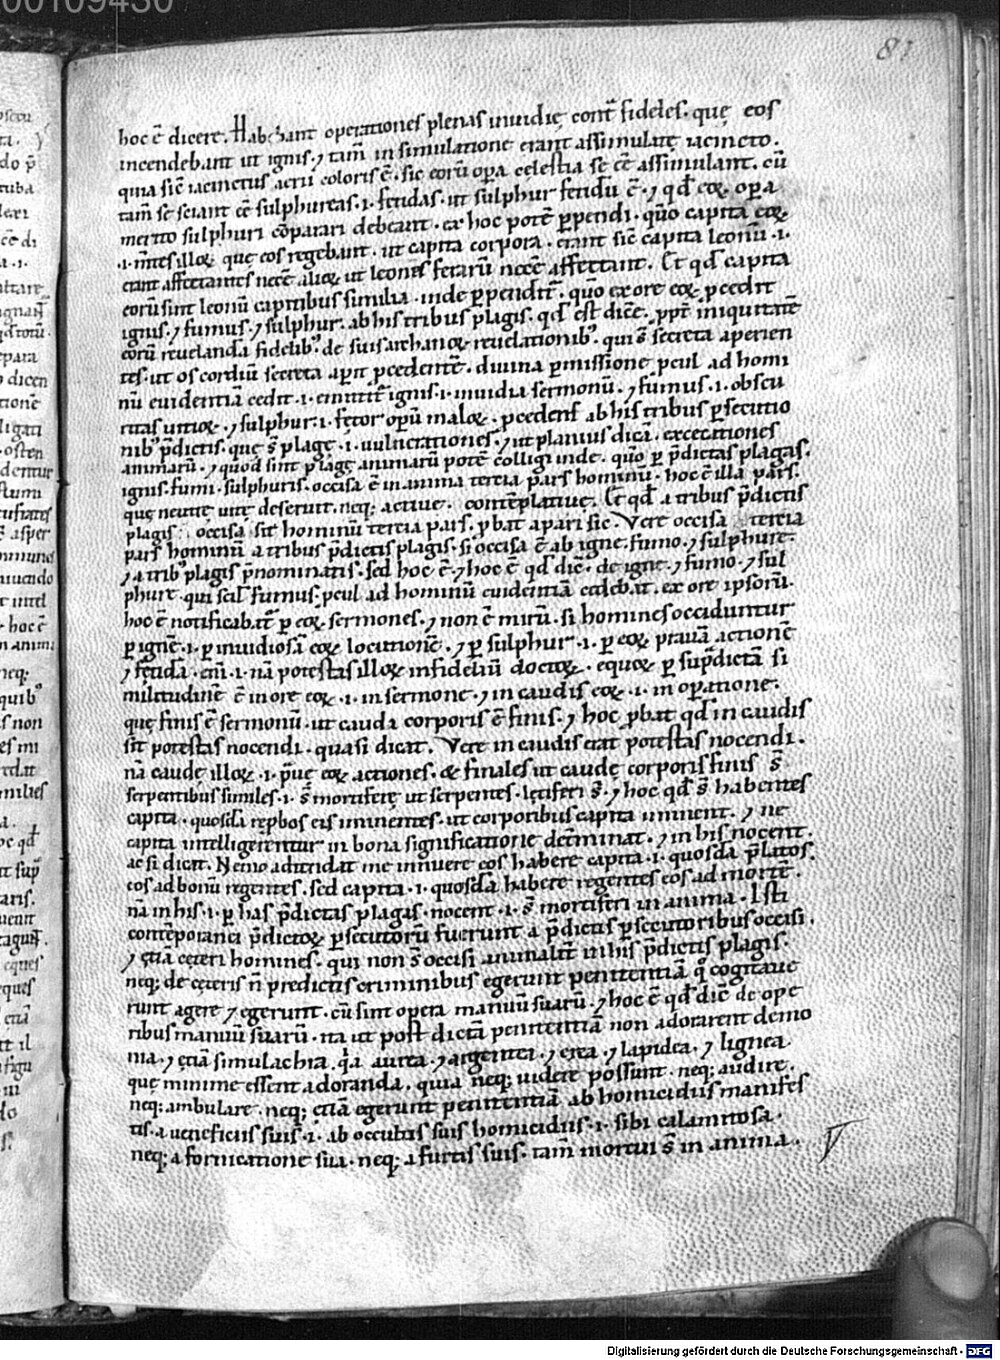 00109430
81
hoc ē dicere. Habebant operationes plenas inuidię cont̄ fideles. quę eos
incendebant ut ignis. ⁊ tam̄ in simulatione erant assimulatę iacincto.
quia sic̄ iacinctus aerii coloris ē. sic eorū oꝑa celestia se eē̄ assimulant. cū
tam̄ se sciant eē sulphureas .i. fetidas. ut sulphur fetidū ē. ⁊ qd̄ eoꝝ oꝑa
merito sulphuri cōparari debeant. ex hoc potē ꝑpendi. quō capita eoꝝ
.i. m̄tes illoꝝ que eos regebant. ut capita corpora. erant sic̄ capita leonū .i.
erant affectantes necē alioꝝ ut leones ferarū necē affectant. Et qd̄ capita
eorū sint leonū capitibus similia. inde ꝑpendit̄. quō ex ore eoꝝ ꝓcedit
ignis. ⁊ fumus. ⁊ sulphur. ab his tribus plagis. qd̄ est dicē. ꝓpt̄ iniquitatē
eorū reuelanda fidelib᷒. de suis archanoꝝ reuelationib᷒. qui s̄ secreta aperien
tes. ut os cordiū secreta aꝑit ꝓcedentē. diuina ꝑmissione ꝓcul ad homi
nū euidentiā cedit .i. emittit̄ ignis .i. inuidia sermonū. ⁊ fumus .i. obscu
ritas uitioꝝ. ⁊ sulphur .i. fętor opū maloꝝ. ꝓcedens ab his tribus ꝑsecutio
nib᷒ p̄dictis. quę s̄ plagę .i. uulnerationes. ⁊ ut planius dicā. excecationes
animarū. ⁊ quod sint plagę animarū potē colligi inde. quō ꝑ p̄dictas plagas.
ignis. fumi. sulphuris. occisa ē in anima tercia pars hominū. hoc ē illa pars.
quę neutre uitę deserunt. neq; actiue. contēplatiue. Et qd̄ a tribus p̄dictis
plagis occisa sit hominū tercia pars. ꝓbat a pari sic. Vere occisa tercia
pars hominū a tribus p̄dictis plagis. si occisa ē ab igne. fumo. ⁊ sulphure.
⁊ a trib᷒ plagis p̄nominatis. sed hoc ē. ⁊ hoc ē qd̄ dic̄. de igne. ⁊ fumo. ⁊ sul
phure. qui scil̄ fumus. ꝓcul ad hominū euidentiā cedebat. ex ore ipsorū.
hoc ē notificabat̄ ꝑ eoꝝ sermones. ⁊ non ē mirū. si homines occiduntur
ꝑ ignē .i. ꝑ inuidiosā eoꝝ locutionē. ⁊ ꝑ sulphur .i. ꝑ eoꝝ prauā actionē
⁊ fętidā. eni᷒ .i. nā potestas illoꝝ infideliū doctoꝝ. equoꝝ ꝑ sup̄dictā si
militudinē ē in ore eoꝝ .i. in sermone. ⁊ in caudis eoꝝ .i. in oꝑatione.
quę finis ē sermonū. ut cauda corporis ē finis. ⁊ hoc ꝓbat qd̄ in caudis
sit potestas nocendi. quasi dicat. Vere in caudis erat potestas nocendi.
nā caudę illoꝝ .i. p̄uę eoꝝ actiones. & finales ut caudę corporis finis s̄
serpentibus similes .i. s̄ mortiferę ut serpentes. lętiferi s̄. ⁊ hoc qd̄ s̄ habentes
capita. quosdā rep̄bos eis iminentes. ut corporibus capita iminent. ⁊ ne
capita intelligerentur in bona significatione det̄minat. ⁊ in his nocent.
ac si dicat. Nemo attendat me innuere eos habere capita .i. quosdā p̄latos.
eos ad bonū regentes. sed capita .i. quosdā habere regentes eos ad mortē.
nā in his .i. ꝑ has p̄dictas plagas. nocent .i. s̄ mortiferi in anima. Isti
contēporanei p̄dictoꝝ ꝑsecutorū fuerunt a p̄dictis ꝑsecutoribus occisi.
⁊ etiā cęteri homines. qui non s̄ occisi animalit̄ in his p̄dictis plagis.
neq; de cęteris n̄ predictis criminibus egerunt penitentiā qͣ cogitaue
runt agere ⁊ egerunt. cū sint opera manuū suarū. ⁊ hoc ē qd̄ dic̄ de ope
ribus manuū suarū. ita ut post dictā penitentiā non adorarent demo
nia. ⁊ etiā simulachra. q̄ a aurea. ⁊ argentea. ⁊ erea. ⁊ lapidea. ⁊ lignea.
que minime essent adoranda. quia neq; uidere possunt. neq; audire.
neq; ambulare. neq; etiā egerunt penitentiā ab homicidiis manifes
tis. a ueneficiis suis .i. ab occultis suis homicidiis .i. sibi calamitosa.
neq; a fornicatione sua. neq; a furtis suis. tam̄ mortui s̄ in anima.
Digitalisierung gefördert durch die Deutsche Forschungsgemeinschaft - DFG